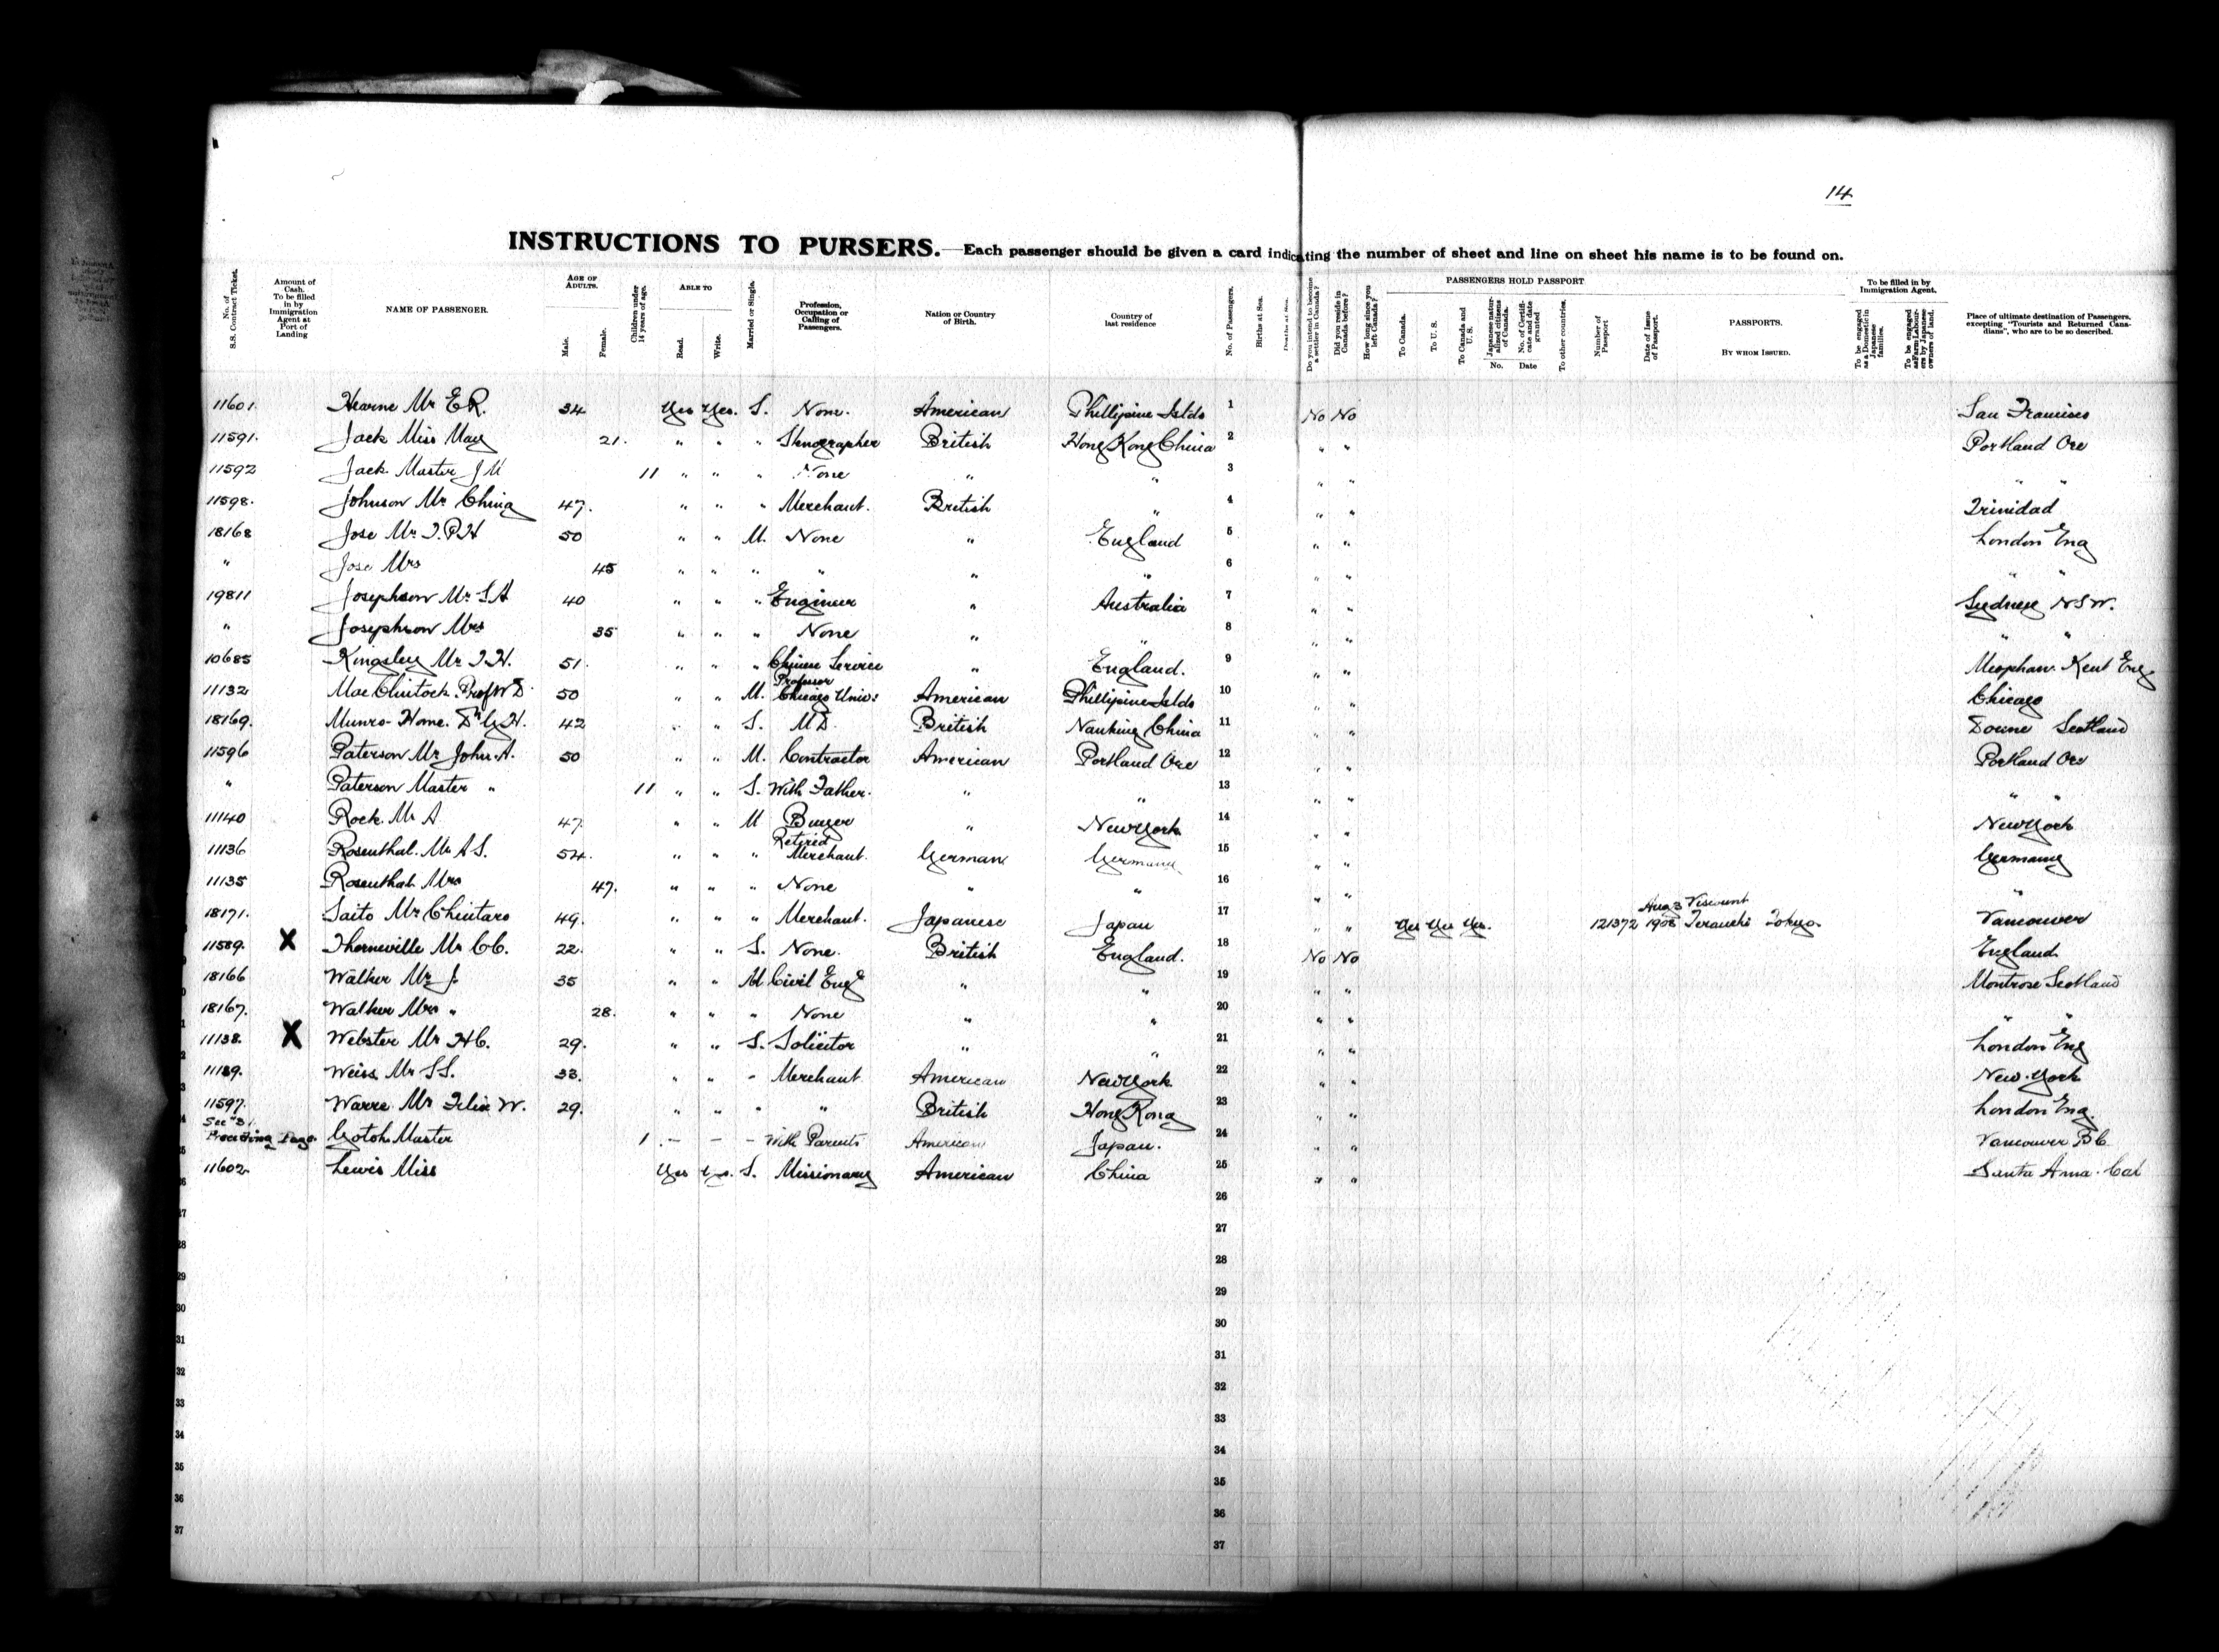 14
INSTRUCTIONS TO PURSERS.—Each passenger should be given a card indicating the number of sheet and line on sheet his name is to be found on.
No. of S.S. Contract Ticket. Amount of Cash. To be filled in by Immigration Agent at Port of Landing NAME OF PASSENGER. AGE OF ADULTS. Male. Female. Children under 14 years of age. ABLE TO Read. Write. Married or Single. Profession, Occupation or Calling of Passengers. Nation or Country of Birth. Country of last residence No. of Passengers. Births at Sea. Deaths at Sea. Do you intend to become a settler in Canada? Did you reside in Canada before? How long since you left Canada? PASSENGERS HOLD PASSPORT To Canada. To U. S. To Canada and U. S. Japanese naturalised citizens of Canada. No. of Certificate and date granted No. Date To other countries. Number of Passport Date of Issue of Passport. PASSPORTS. BY WHOM ISSUED. To be filled in by Immigration Agent. To be engaged as a Domestic in Japanese families. To be engaged as Farm Labourers by Japanese owners of land. Place of ultimate destination of Passengers, excepting "Tourists and Returned Canadians", who are to be so described.
11601. Hearne Mr E.R. 34 Yes Yes. S. None. American Phillipine Islds 1 No No San Francisco
11591. Jack Miss May 21. " " " Stenographer British Hong Kong China 2 " " Portland Ore
11592 Jack. Master J M 11 " " " None " " 3 " " " "
11598. Johnson Mr Ching 47. " " " Merchant. British " 4 " " Trinidad
18168 Jose Mr T.P.H 50 " " M. None " England 5 " " London Eng
" Jose Mrs 45 " " " " " " 6 " " " "
19811 Josephson Mr S A 40 " " " Engineer " Australia 7 " " Sydney N S W.
" Josephson Mrs 35 " " " None " " 8 " " " "
10685 Kingsley Mr T.H. 51. " " " Chinese Service " England. 9 " " Meophan. Kent Eng
11132 MacClintock. Prof W D. 50 " " M. Professor Chicago Univ: American Phillipine Islds 10 " " Chicago
18169. Munro-Home. Dr G H. 42 " " S. M D. British Nanking China 11 " " Doune Scotland
11596 Paterson Mr John. A. 50 " " M. Contractor American Portland Ore 12 " " Portland Ore
" Paterson Master " 11 " " S. With Father. " " 13 " " " "
11140 Rock. Mr A 47. " " M Buyer " New York 14 " " New York
11136 Rosenthal. Mr A S. 54. " " " Retired Merchant. German Germany 15 " " Germany
11135 Rosenthal Mrs 47. " " " None " " 16 " " "
18171. Saito Mr Chintaro 49. " " " Merchant. Japanese Japan 17 " " Yes Yes Yes. 121372 Aug 3 1908 Viscount Terauchi Tokyo. Vancouver
11589. X Thorneville Mr C C. 22. " " S. None. British England. 18 No No England
18166 Walker Mr J. 35 " " M Civil Engr " " 19 " " Montrose Scotland
18167. Walker Mrs " 28. " " " None " " 20 " " " "
11138. X Webster Mr H C. 29. " " S. Solicitor " " 21 " " London Eng
11139. Weiss Mr S S. 33. " " " Merchant American New York 22 " " New. York
11597. Warre Mr Felix W. 29. " " " " British Hong Kong 23 " " London Eng.
Preceding Page. Gotoh Master 1 — — — With Parents American Japan. 24 " " Vancouver B C
11602 Lewis Miss Yes Yes. S. Missionary American China 25 " " Santa Anna. Cal
26
27 27
28 28
29 29
30 30
31 31
32 32
33 33
34 34
35 35
36 36
37 37